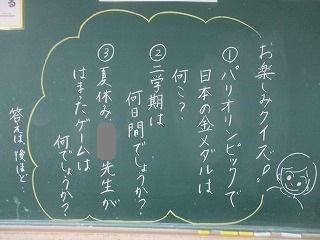 お楽しみクイズ!!
①パリオリンピックで
日本の金メダルは
何こ?
②二学期は
何日間でしょうか?
③夏休み 先生が
はまったゲームは
何でしょうか?
答えは、後ほど…